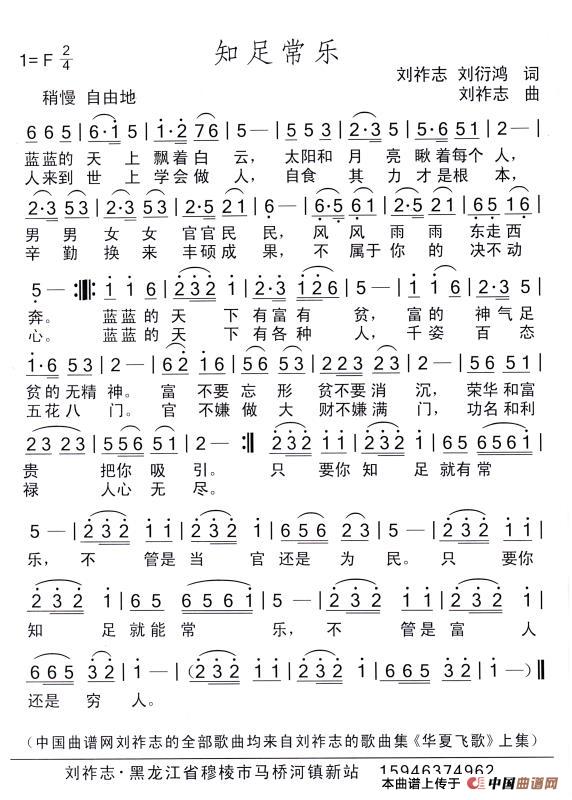 知足常乐
1=F 2/4
刘祚志 刘衍鸿 词
稍慢 自由地
刘祚志 曲
6 6 5 | 6·1 5 | 1·2 7 6 | 5 — | 5 5 3 | 2·3 5 | 5·6 5 1 | 2 — |
蓝蓝的 天 上 飘着白 云， 太阳和 月 亮 瞅着每个 人，
人来到 世 上 学会做 人， 自食 其 力 才是根 本，
2·3 5 3 | 2·3 5 3 | 2·3 2 1 | 5 — | 2·5 2 1 | 2·5 2 1 | 6 5 1 6 |
男 男 女 女 官官民 民， 风 风 雨 雨 东走西
辛 勤 换 来 丰硕成 果， 不 属于 你 的 决不动
5 — :‖: 1 1 6 | 2 3 2 1 | 2·3 1 2 6 | 5 — | 1 1 6 | 5·3 5 |
奔。 蓝蓝的 天 下 有富有 贫， 富的 神 气足
心。 蓝蓝的 天 下 有各种 人， 千姿 百 态
1·6 5 3 | 2 — | 6 2 1 6 | 5 3 5 | 2 2 3 2 3 | 5 — | 5 3 5 |
贫的无精 神。 富 不要 忘 形 贫不要消 沉， 荣华和富
五花八 门。 官 不嫌 做 大 财不嫌满 门， 功名和利
2 3 2 3 | 5 5 6 5 1 | 2 — :‖ 2 3 2 1 1 | 2 3 2 1 | 6 5 6 5 6 1 |
贵 把你 吸 引。 只 要你 知 足就有常
禄 人心 无 尽。
5 — | 2 3 2 1 1 | 2 3 2 1 | 6 5 6 2 3 | 5 — | 2 3 2 1 1 |
乐， 不 管是 当 官 还是 为 民。 只 要你
2 3 2 1 | 6 5 6 5 6 1 | 5 — | 2 3 2 1 1 | 2 3 2 1 |
知 足就能 常 乐， 不 管是 富 人
6 6 5 3 2 | 1 — | (2 3 2 1 1 | 2 3 2 1 1 | 6 5 6 2 3 | 1 —) ‖
还是 穷 人。
（中国曲谱网刘祚志的全部歌曲均来自刘祚志的歌曲集《华夏飞歌》上集）
刘祚志·黑龙江省穆棱市马桥河镇新站 15946374962
本曲谱上传于 中国曲谱网